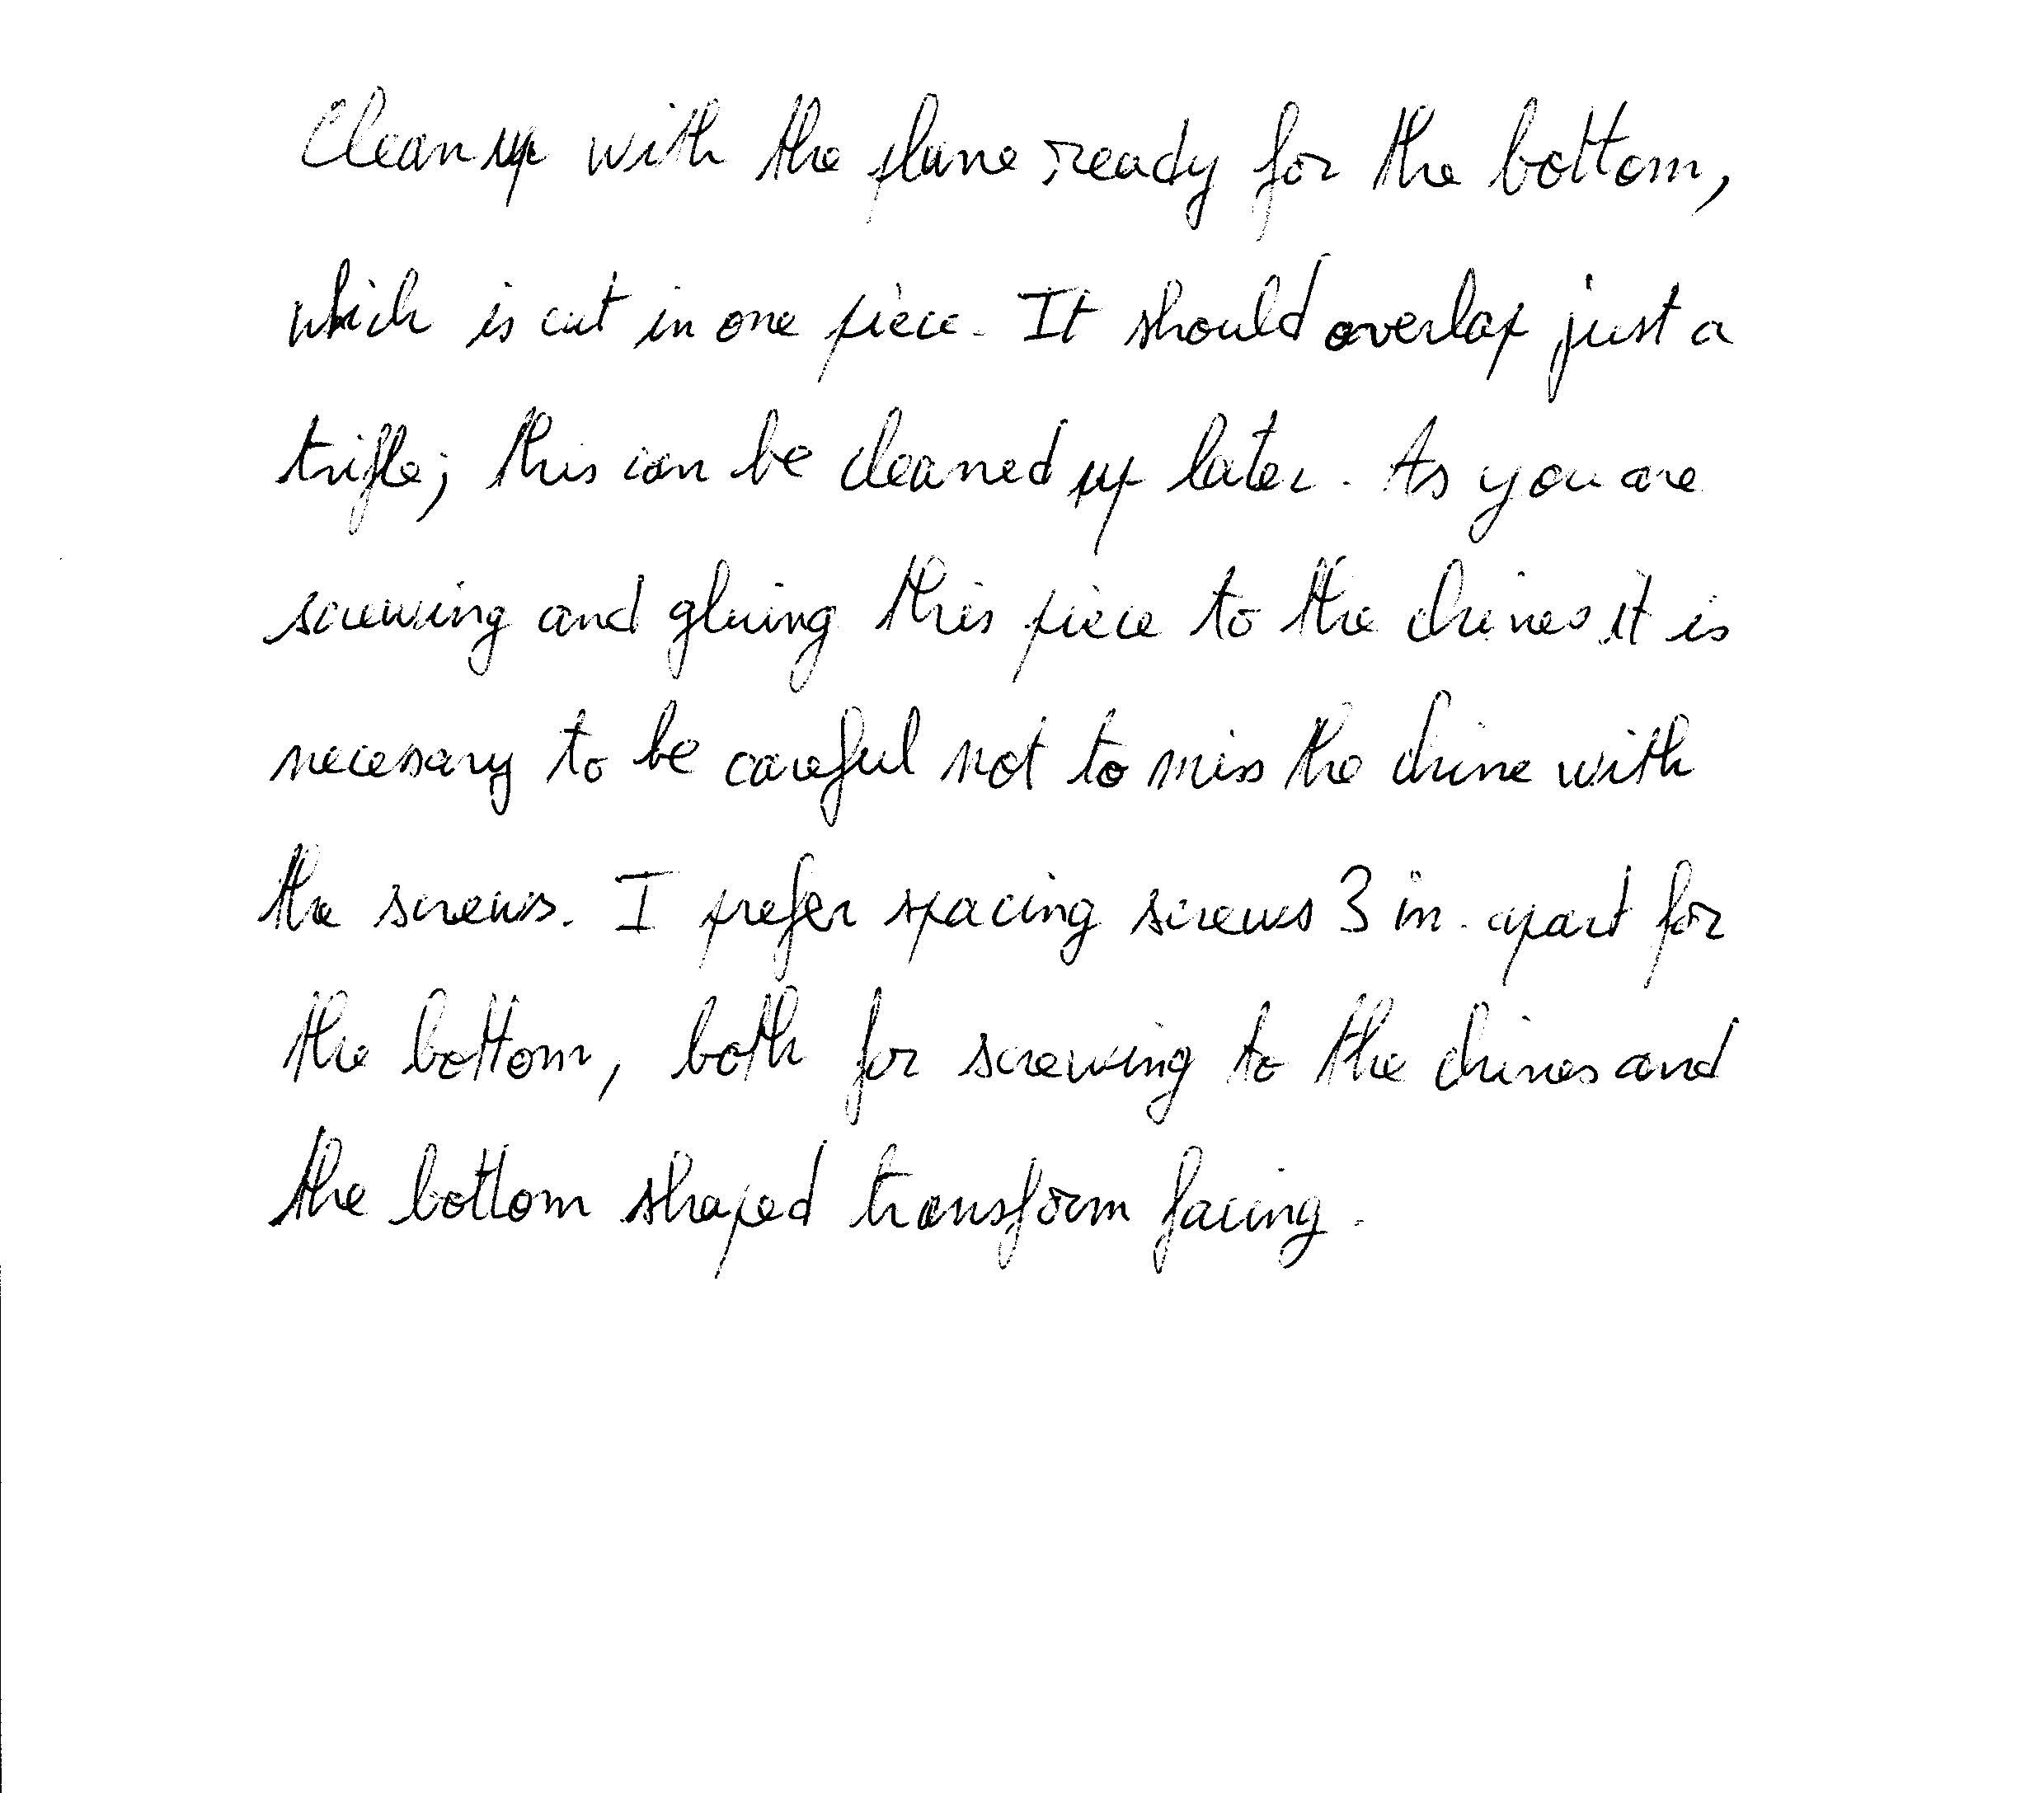 Clean up with the plane ready for the bottom,
which is cut in one piece. It should overlap just a
trifle; this can be cleaned up later. As you are
screwing and gluing this piece to the chines it is
necessary to be careful not to miss the chine with
the screws. I prefer spacing screws 3 in. apart for
the bottom, both for screwing to the chines and
the bottom shaped transform facing.